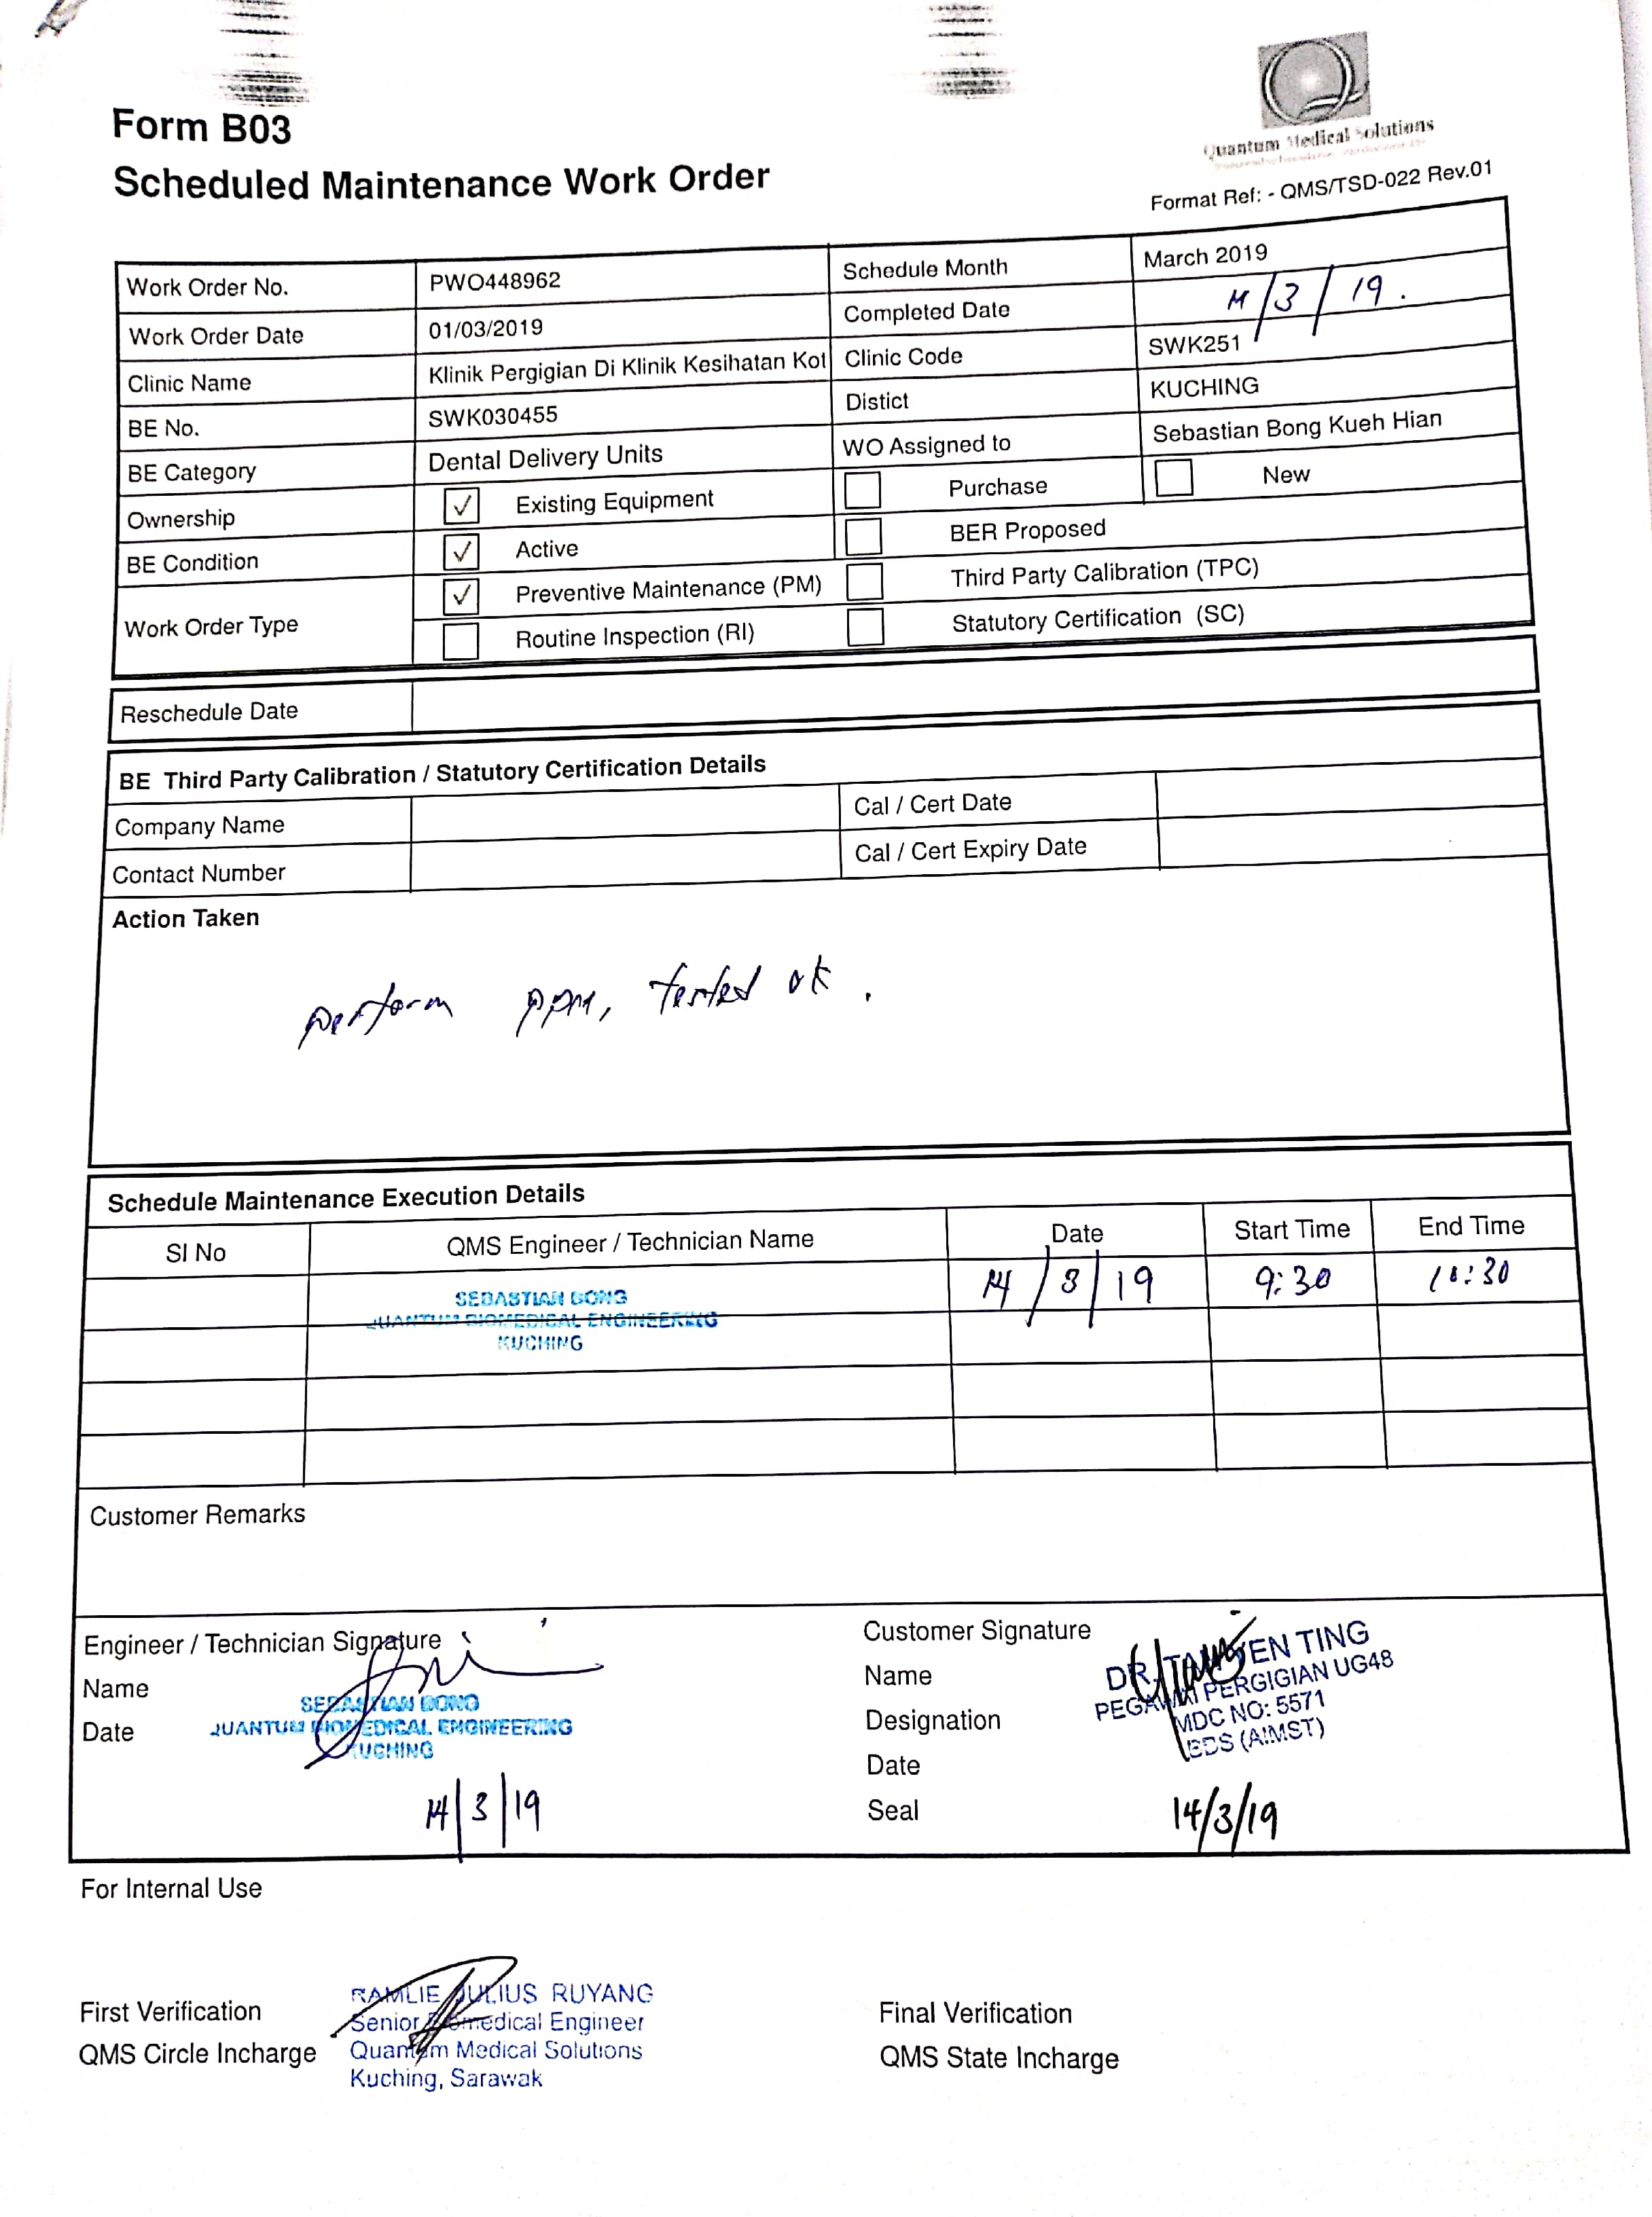 Quantum Medical Solutions
Form B03
Scheduled Maintenance Work Order
Format Ref: - QMS/TSD-022 Rev.01
Work Order No. PWO448962 Schedule Month March 2019
Work Order Date 01/03/2019 Completed Date 14/3/19.
Clinic Name Klinik Pergigian Di Klinik Kesihatan Kot Clinic Code SWK251
BE No. SWK030455 Distict KUCHING
BE Category Dental Delivery Units WO Assigned to Sebastian Bong Kueh Hian
Ownership ✓ Existing Equipment Purchase New
BE Condition ✓ Active BER Proposed
Work Order Type ✓ Preventive Maintenance (PM) Third Party Calibration (TPC)
Routine Inspection (RI) Statutory Certification (SC)
Reschedule Date
BE Third Party Calibration / Statutory Certification Details
Company Name Cal / Cert Date
Contact Number Cal / Cert Expiry Date
Action Taken
perform ppm, tested ok.
Schedule Maintenance Execution Details
SI No QMS Engineer / Technician Name Date Start Time End Time
SEBASTIAN BONG 14/3/19 9:30 :30
QUANTUM BIOMEDICAL ENGINEERING
KUCHING
Customer Remarks
Engineer / Technician Signature
Name
Date
SEBASTIAN BONG
QUANTUM BIOMEDICAL ENGINEERING
KUCHING
14/3/19
Customer Signature
Name
Designation
Date
Seal
DR. EN TING
PEGAWAI PERGIGIAN UG48
MDC NO: 5571
BDS (AIMST)
14/3/19
For Internal Use
First Verification
QMS Circle Incharge
RAMLIE JULIUS RUYANG
Senior Biomedical Engineer
Quantum Medical Solutions
Kuching, Sarawak
Final Verification
QMS State Incharge